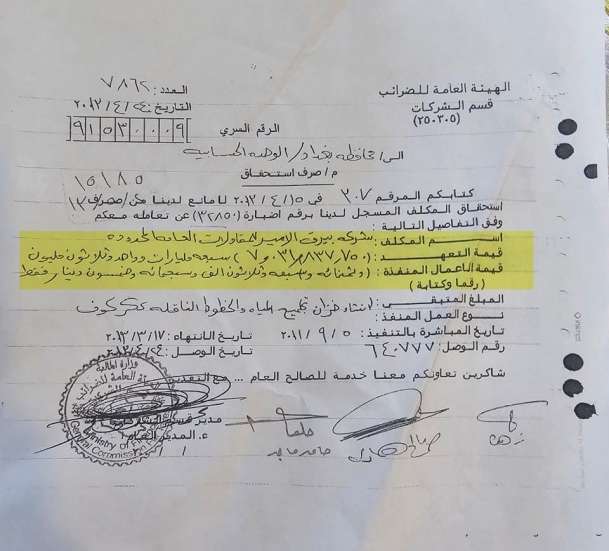 الهيئة العامة للضرائب
قسم الشركات
(٢٥٠٣٠٥)
العدد: ٧٨٦٢
التاريخ: ٢٠١٣/٤/٢٤
الرقم السري ٩١٥٣٠٠٠٩
الى/ محافظة بغداد/ الوحدة الحسابية
م/ صرف استحقاق
١٥١٨٥
كتابكم المرقم ٣٠٧ في ٢٠١٣/٤/١٥ لامانع لدينا من صرف
استحقاق المكلف المسجل لدينا برقم اضبارة (٣٢٨٥٠) عن تعامله معكم
وفق التفاصيل التالية:
اسم المكلف: شركة بيرق الامير للمقاولات العامة المحدودة
قيمة التعهد: (٧٠٣١,٨٣٧,٧٥٠) سبعة مليارات وواحد وثلاثون مليون
قيمة الاعمال المنفذة: (وثمنمائة وسبعة وثلاثون الف وسبعمائة وخمسون دينار فقط
(رقما وكتابة)
المبلغ المتبقي:
نوع العمل المنفذ: انشاء خزان تجميع المياه والخطوط الناقلة
تاريخ المباشرة بالتنفيذ: ٢٠١١/٩/٥ تاريخ الانتهاء: ٢٠١٣/٣/١٧
رقم الوصل: ٦٤٠٧٧٧ تاريخ الوصل: ٢٠١٣/٤/٢٤
شاكرين تعاونكم معنا خدمة للصالح العام ... مع التقدير
مدير قسم الشركات
ء. المدير العام
/ /
وزارة المالية
الهيئة العامة للضرائب
Ministry of Finance
General Commission